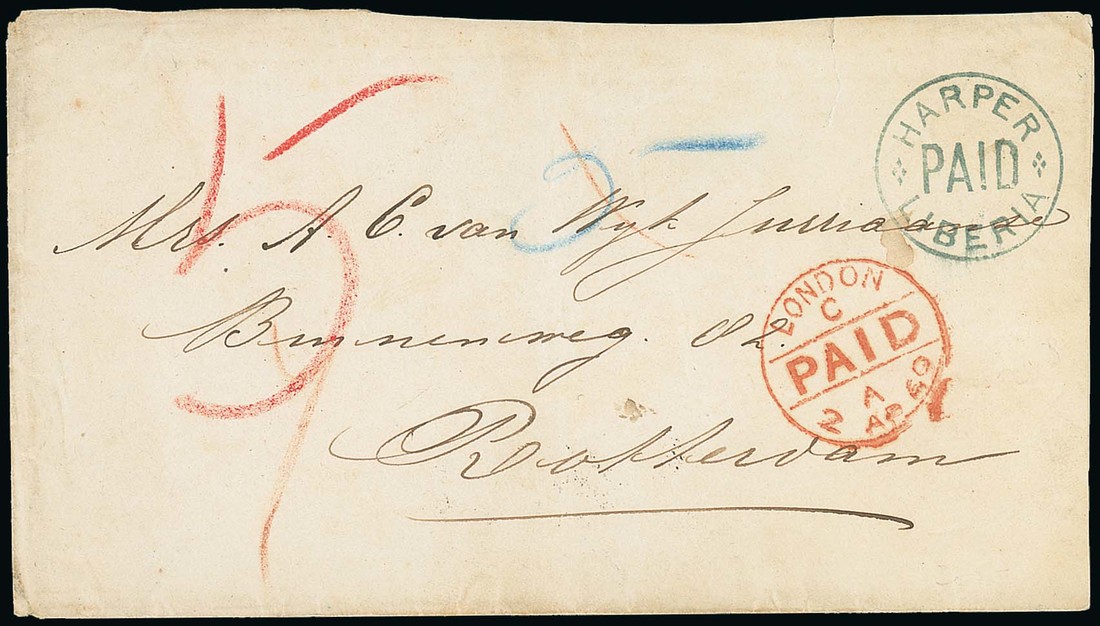 HARPER
PAID
LIBERIA
5
5
Mrs. A. C. van Wyk Jurriaanse
Binnenweg. 82.
Rotterdam
LONDON
C
PAID
A
2 AP 80